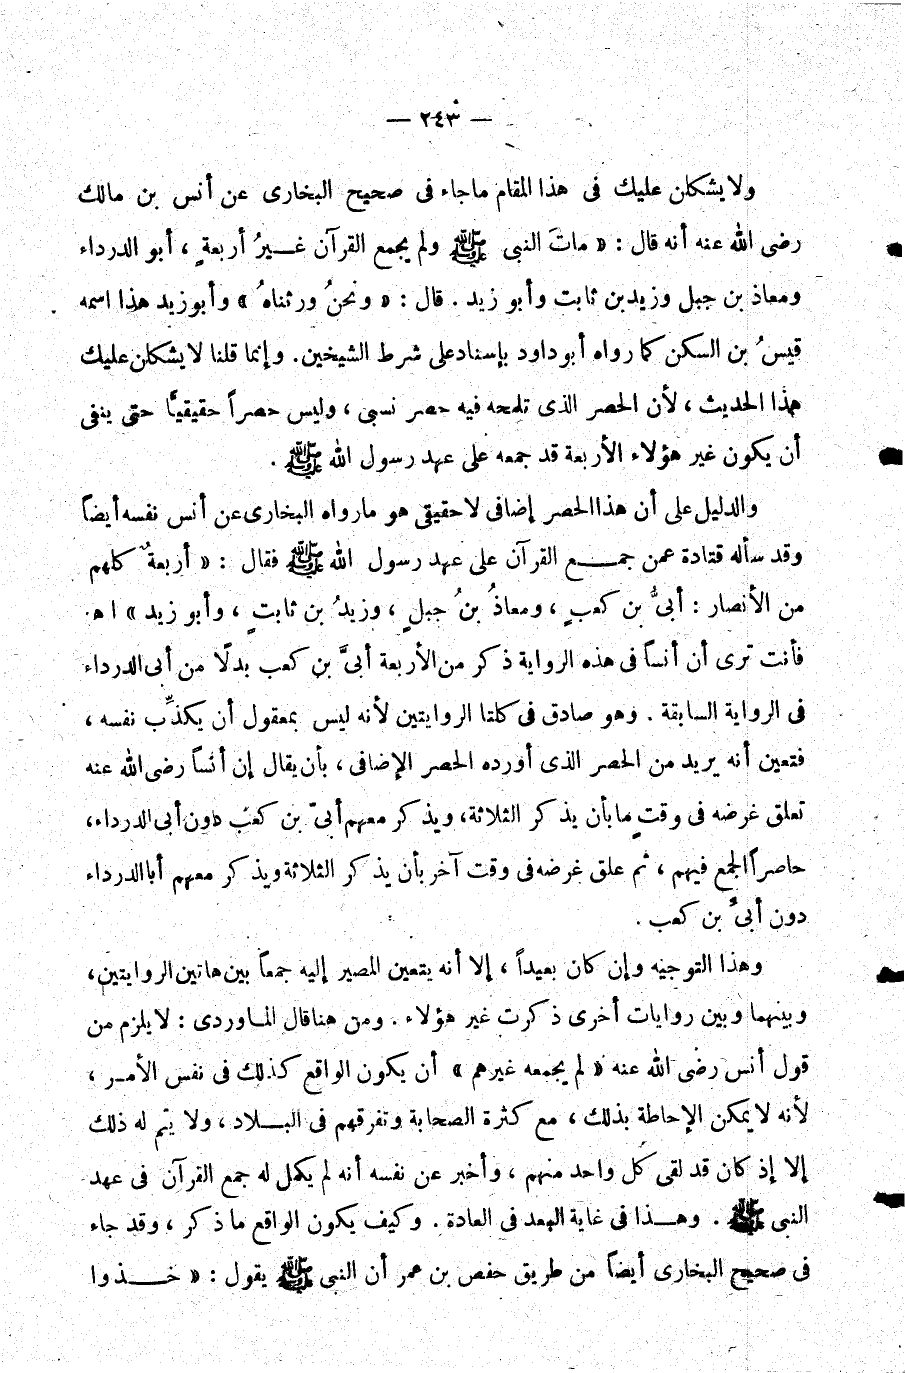 — ٢٤٣ —
ولا يشكلن عليك فى هذا المقام ماجاء فى صحيح البخارى عن أنس بن مالك
رضى الله عنه أنه قال : « ماتَ النبى ﷺ ولم يجمع القرآن غيرُ أربعةٍ ، أبو الدرداء
ومعاذ بن جبل وزيدبن ثابت وأبو زيد . قال : « ونحنُ ورثناهُ » وأبوزيد هذا اسمه
قيسُ بن السكن كما رواه أبو داود بإسنادعلى شرط الشيخين . وإنما قلنا لا يشكلن عليك
هذا الحديث ، لأن الحصر الذى تلمحه فيه حصر نسبى ، وليس حصراً حقيقيًّا حتى ينفى
أن يكون غير هؤلاء الأربعة قد جمعه على عهد رسول الله ﷺ .
والدليل على أن هذا الحصر إضافى لاحقيقى هو مارواه البخارى عن أنس نفسه أيضاً
وقد سأله قتادة عمن جمع القرآن على عهد رسول الله ﷺ فقال : « أربعةٌ كلهم
من الأنصار : أبىُّ بن كعبٍ ، ومعاذُ بنُ جبلٍ ، وزيدُ بن ثابتٍ ، وأبو زيد » ا ه .
فأنت ترى أن أنساً فى هذه الرواية ذكر من الأربعة أبىَّ بن كعب بدلًا من أبى الدرداء
فى الرواية السابقة . وهو صادق فى كلتا الروايتين لأنه ليس بمعقول أن يكذِّب نفسه ،
فتعين أنه يريد من الحصر الذى أورده الحصر الإضافى ، بأن يقال إن أنساً رضى الله عنه
تعلق غرضه فى وقتٍ ما بأن يذكر الثلاثة، ويذكر معهم أبىّ بن كعب دون أبى الدرداء،
حاصراً الجمع فيهم ، ثم علق غرضه فى وقت آخر بأن يذكر الثلاثة ويذكر معهم أبا الدرداء
دون أبىِّ بن كعب .
وهذا التوجيه وإن كان بعيداً ، إلا أنه يتعين المصير إليه جمعاً بين هاتين الروايتين،
وبينهما وبين روايات أخرى ذكرت غير هؤلاء . ومن هناقال الماوردى : لا يلزم من
قول أنس رضى الله عنه « لم يجمعه غيرهم » أن يكون الواقع كذلك فى نفس الأمر ،
لأنه لا يمكن الإحاطة بذلك ، مع كثرة الصحابة وتفرقهم فى البلاد ، ولا يتم له ذلك
إلا إذ كان قد لقى كل واحد منهم ، وأخبر عن نفسه أنه لم يكمل له جمع القرآن فى عهد
النبى ﷺ . وهذا فى غاية البعد فى العادة . وكيف يكون الواقع ما ذكر ، وقد جاء
فى صحيح البخارى أيضاً من طريق حفص بن عمر أن النبى ﷺ يقول : « خذوا